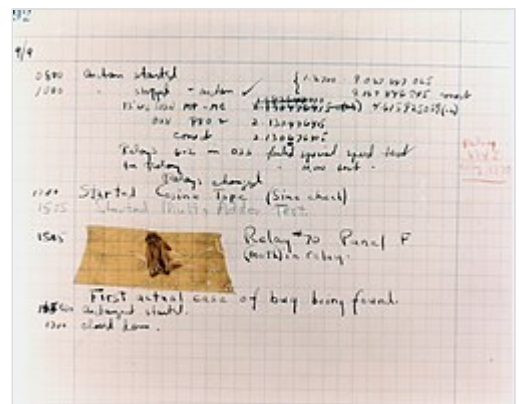 92
9/9
0800 Antan started
1000 " stopped - antan ✓ { 1.2700 9.037 847 025
9.037 846 995 correct
13"uc (032) MP - MC 4.615925059(-2)
033 PRO 2 2.130476415
correct 2.130676415
Relays 6-2 in 033 failed special speed test
in relay
Relays changed
Started Cosine Tape (Sine check)
1525 Started Multi Adder Test.
1545 Relay #70 Panel F
(Moth) in relay.
First actual case of bug being found.
antangent started.
1700 closed down.